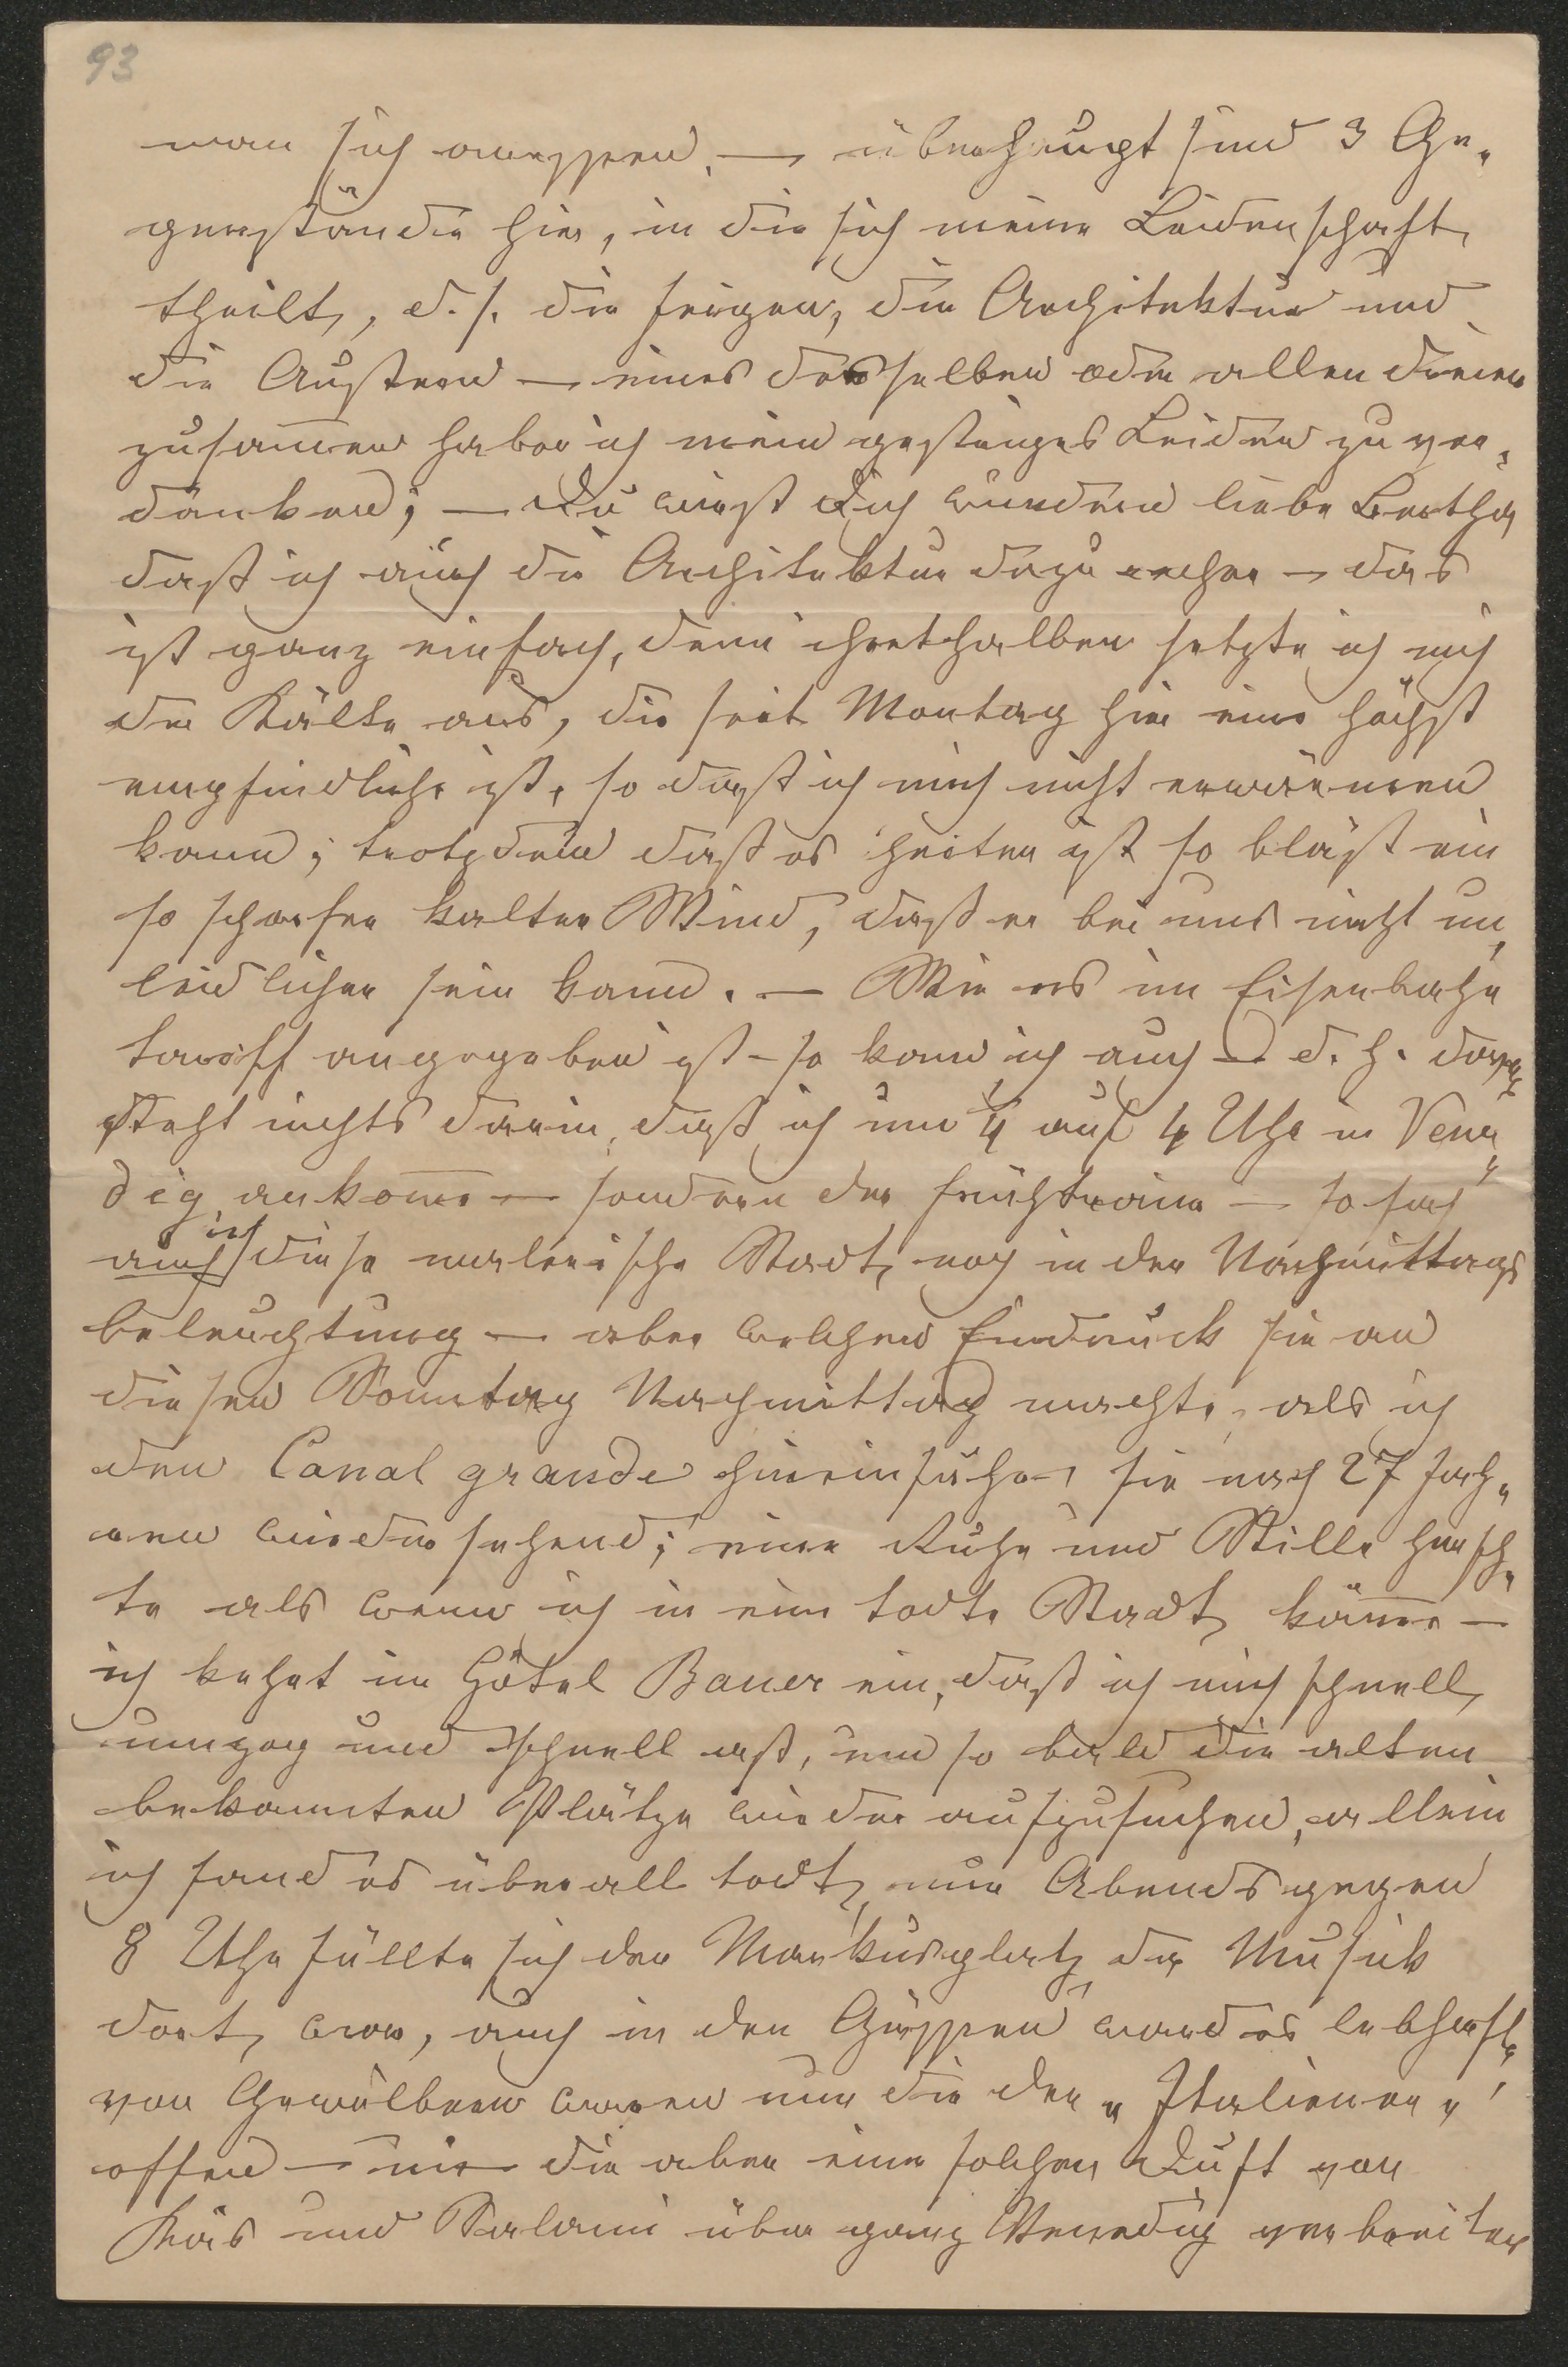 93
man sich anessen. — überhaupt sind 3 Ge-
genstände hier, in die sich meine Leidenschaft
theilt, d. h. die Feigen, die Architektur und
die Austern — eines desselben oder allen dreien
zusammen habe ich mein gestriges Leiden zu ver-
danken; — Du wirst Dich wundern liebe Bertha
daß ich auch die Architektur dazu rechne — das
ist ganz einfach, denn ihrethalben setzte ich mich
der Kälte aus, die seit Montag hier eine höchst
empfindliche ist, so daß ich mich nicht erwärmen
kann; trotzdem daß es heiter ist so bläst ein
so scharfer kalter Wind, daß er bei uns nicht un-
leidlicher sein kann. — Wie es im Eisenbahn
tariff angegeben ist — so kam ich auch — d. h.
steht nichts darin, daß ich um ¼ auf 4 Uhr in Vene-
dig ankomme — sondern der Frühtrain — so sah
auch ich diese malerische Stadt, noch in der Nachmittags
beleuchtung — aber welchen Eindruck sie an
diesen Sonntag Nachmittag machte, als ich
den Canal grande hineinfuhr, sie nach 27 Jah-
ren wieder sehend; eine Ruhe und Stille herrsch-
te als wenn ich in eine todte Stadt käme —
ich kehrt im Hôtel Bauer ein, daß ich mich schnell
umzog und schnell aß, um so bald die alten
bekannten Plätze wieder aufzusuchen, allein
ich fand es überall todt, nur Abends gegen
8 Uhr füllte sich der Markusplatz da Musik
dort war, auch in den Gassen ward es lebhaft,
von Gewölbern waren nur die der „Italiener„
offen — die aber eine solchen Duft von
Käs und Salami über ganz Venedig verbreiten